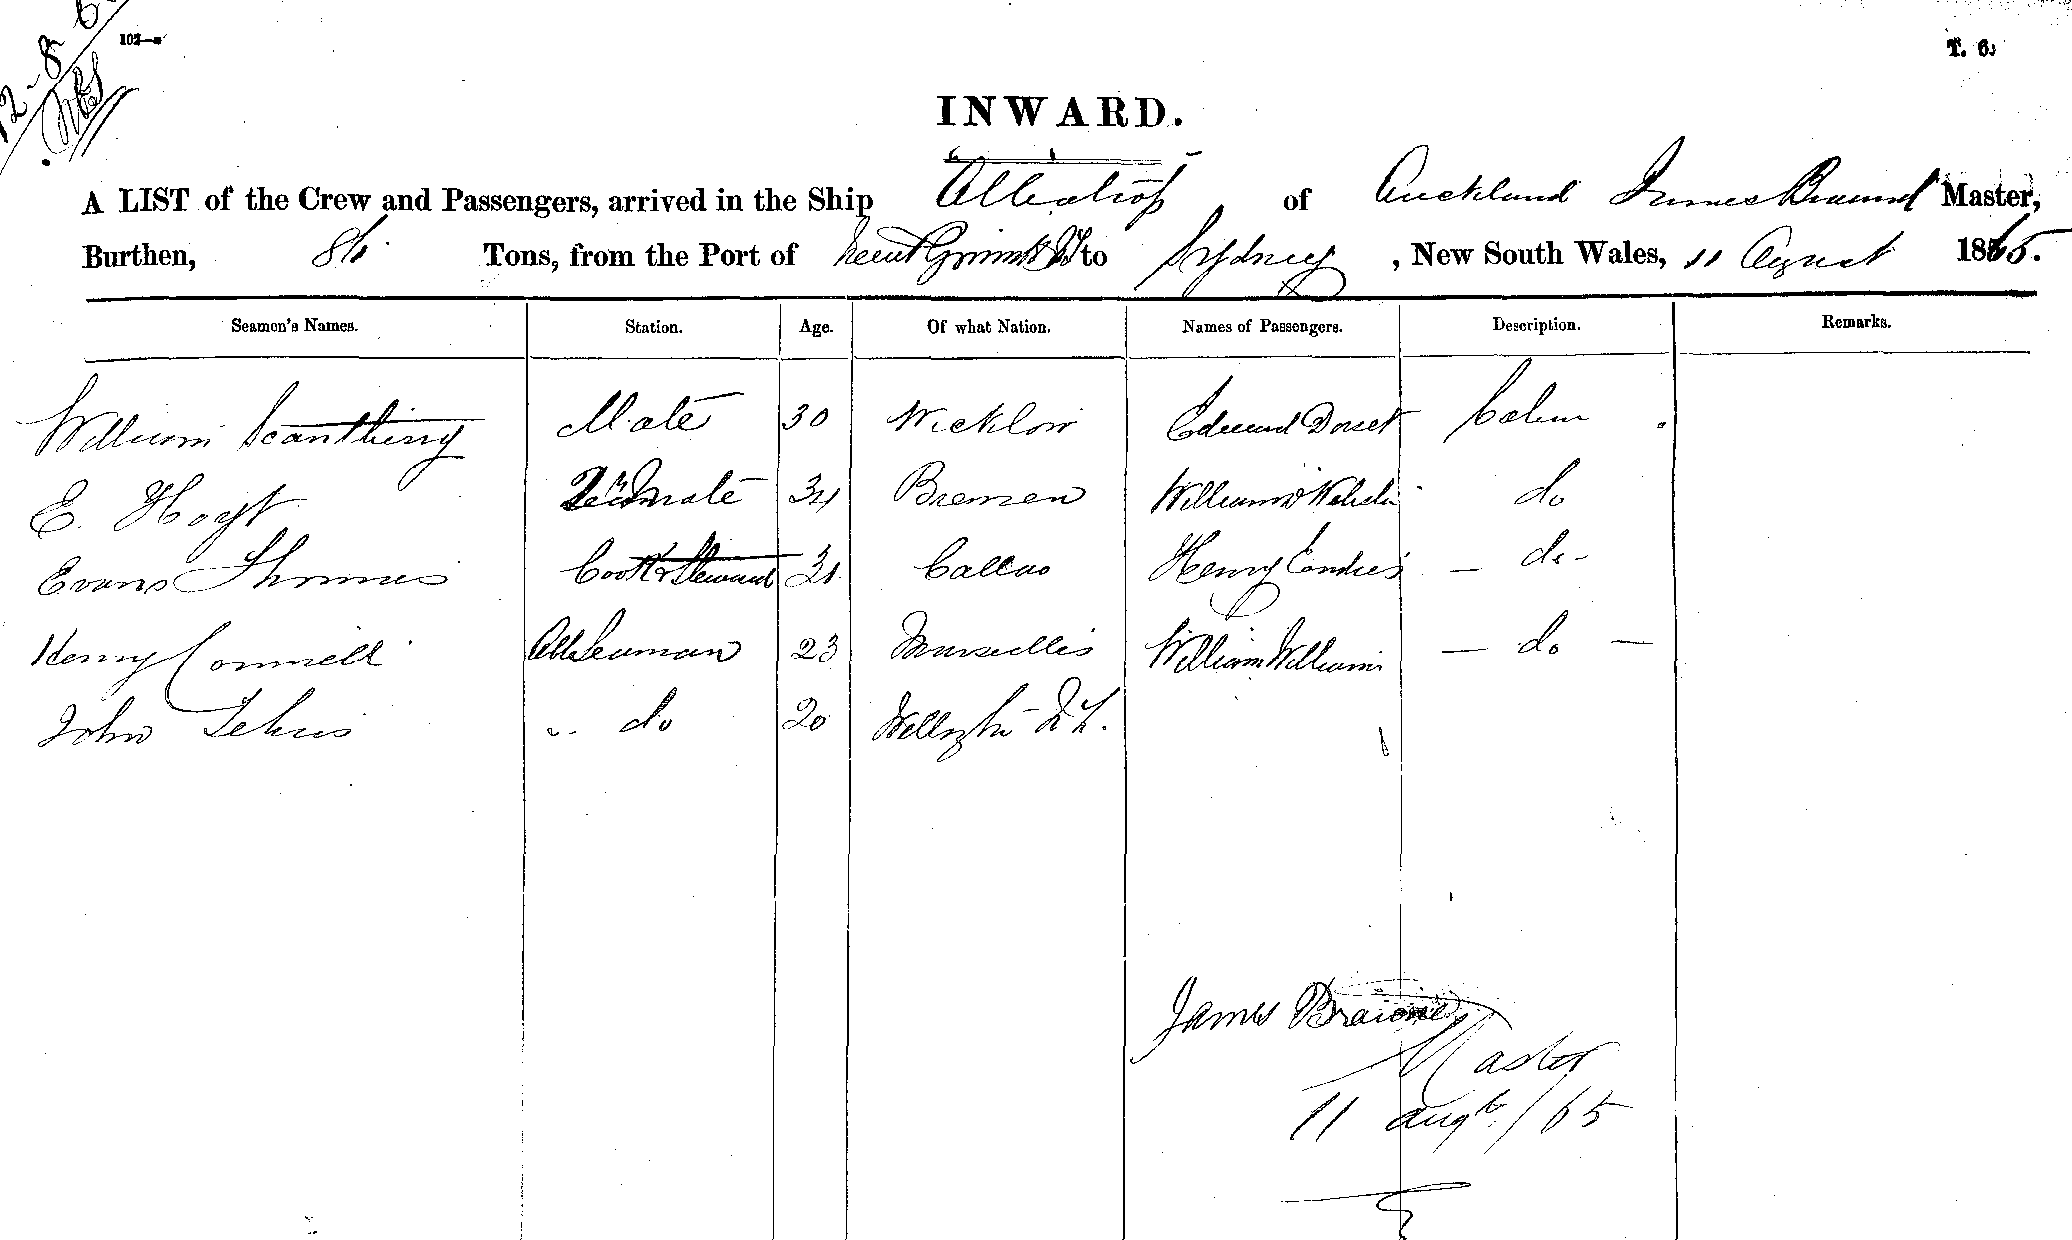 12-8-6
102—
T. 6.
INWARD.
A LIST of the Crew and Passengers, arrived in the Ship Albatross of Auckland James Master,
Burthen, 86 Tons, from the Port of to Sydney, New South Wales, 11 August 1865.
Seamen's Names. Station. Age. Of what Nation. Names of Passengers. Description. Remarks.
William Mate 30 Wicklow Edmund Dorset Cabin
E. Hoyt Mate 34 Bremen William do
Evans Thomas Cook & Steward 31 Callao Henry — do -
Henry Connell AB Seaman 23 Marseilles William Williams — do —
John " do 20 Wellington N Z.
James
Master
11 augt/65